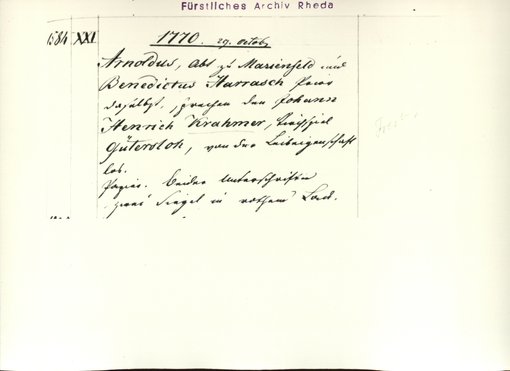 Fürstliches Archiv Rheda
1584 XXI 1770. 29. Octob.
Arnoldus, Abt zu Marienfeld und
Benedictus Harrasch Prior
daselbst, sprechen den Johann
Henrich Krahmer, Kirchspiel
Gütersloh, von der Leibeigenschaft
los.
Papier. Beider Unterschriften
zwei Siegel in rothem Lack.